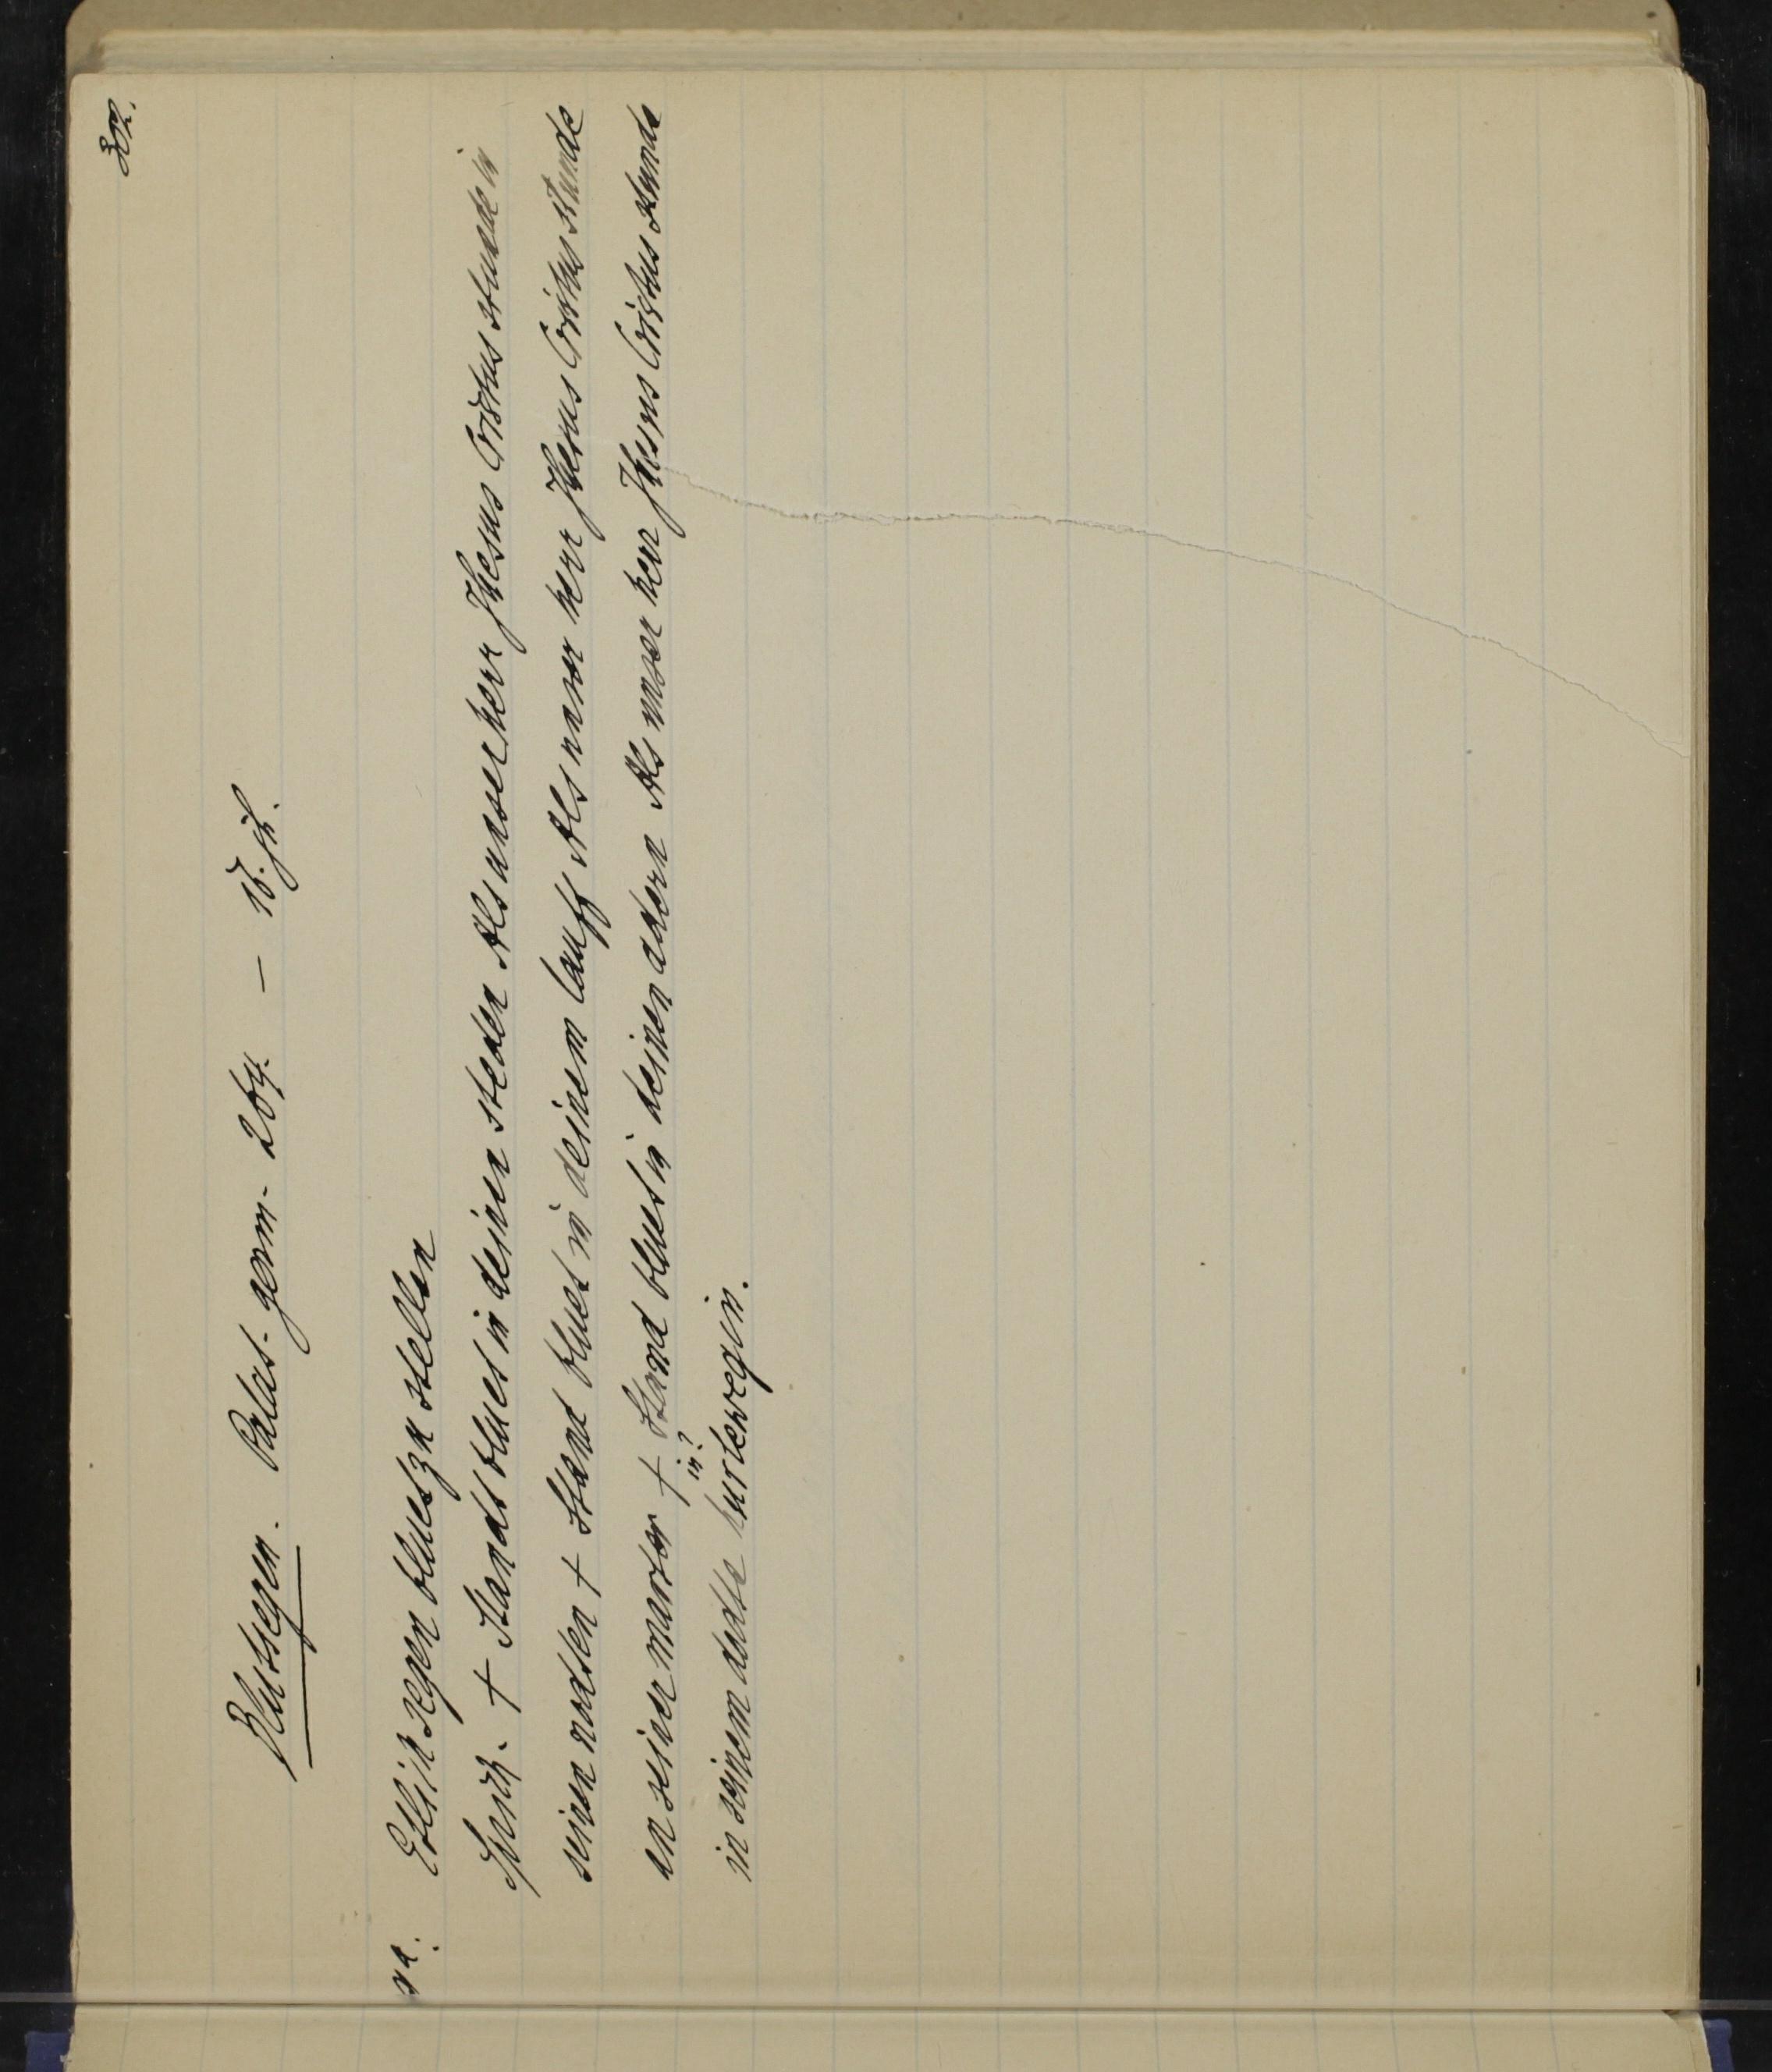 Blutsegen. Palat. germ. 264. — 16. jh.
Etlich segen bluet zu stellen
Sprich. + Standt bluet in deiner steden Als unser herr Jhesus Cristus stunde in
seinen nodten + Stand bluet in deinem lauff Als unser herr Jhesus Cristus stunde
an seiner marter + Stand bluet in deinen adern Als unser herr Jhesus Cristus stunde
in?
in seinem dodte